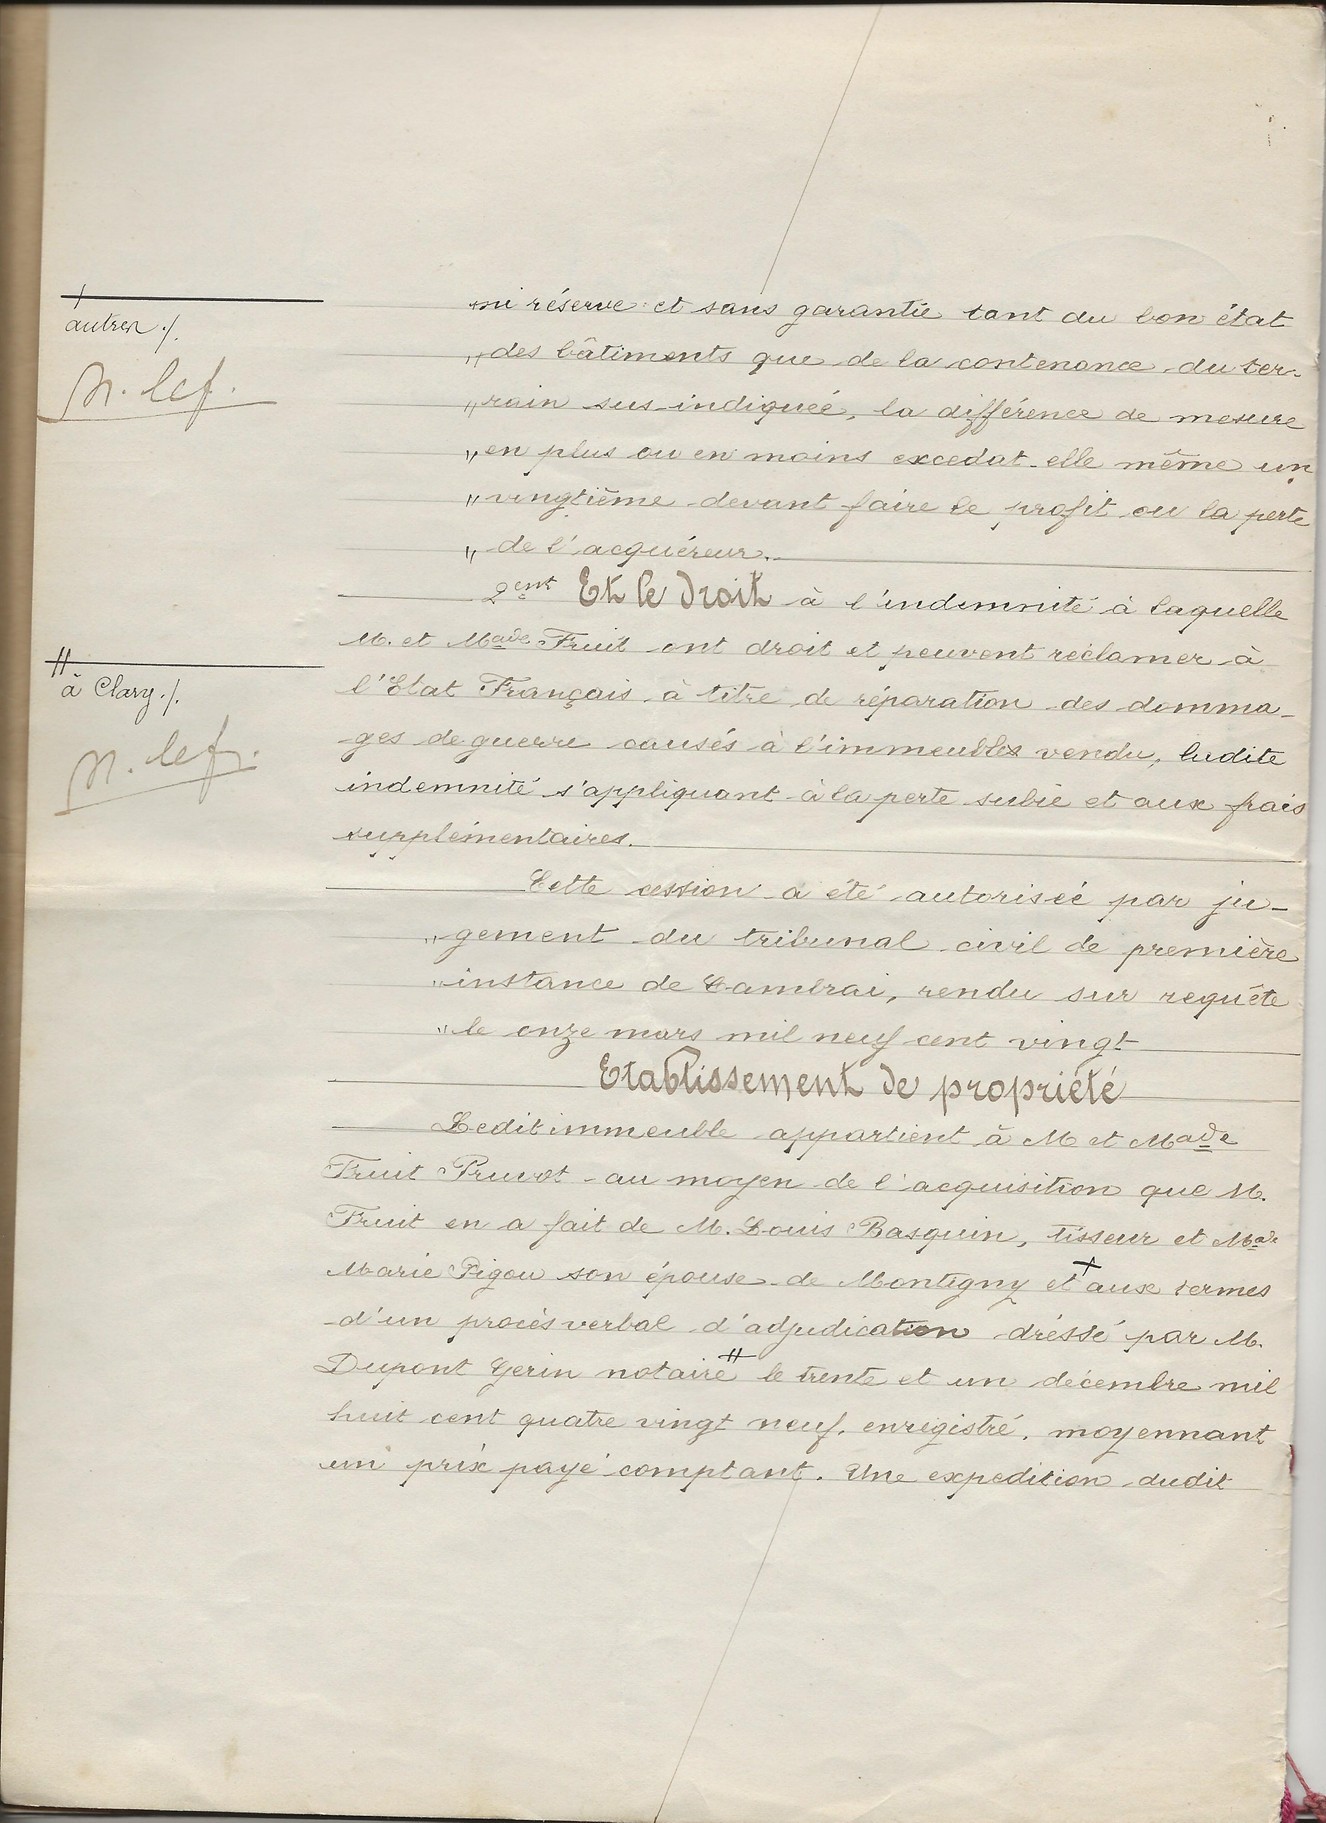 ni réserve et sans garantie tant du bon état
" des bâtiments que de la contenance du ter-
" rain sus indiquée, la différence de mesure
" en plus ou en moins excedat-elle même un
" vingtième devant faire le profit ou la perte
" de l'acquéreur.
2ent Et le Droit à l'indemnité à laquelle
M. et Made Fruit ont droit et peuvent réclamer à
l'Etat Français à titre de réparation des domma-
ges de guerre causés à l'immeuble vendu, ladite
indemnité s'appliquant à la perte subie et aux frais
supplémentaires.
Cette cession a été autorisée par ju-
" gement du tribunal civil de première
" instance de Cambrai, rendu sur requête
" le onze mars mil neuf cent vingt
Etablissement de propriété
Ledit immeuble appartient à M et Made
Fruit Pruvot au moyen de l'acquisition que M.
Fruit en a fait de M. Louis Basquin, tisseur et Made
Marie Pigou son épouse de Montigny et + aux termes
d'un procès verbal d'adjudication dréssé par M.
Dupont Gerin notaire # le trente et un décembre mil
huit cent quatre vingt neuf, enregistré, moyennant
un prix payé comptant. Une expedition dudit
+
autres ./.
N. lef.
#
à Clary ./.
N. lef.